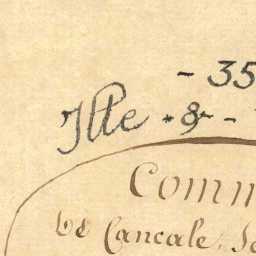 - 35
Ille & -
Comm
de Cancale, Se